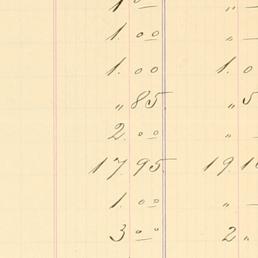 1 00 „ —
1. 00 „ —
1. 00 1. 0
„ 85. „ 5
2. 00 „ —
17 95. 19 1
1. 00 „ —
3 00 2 „